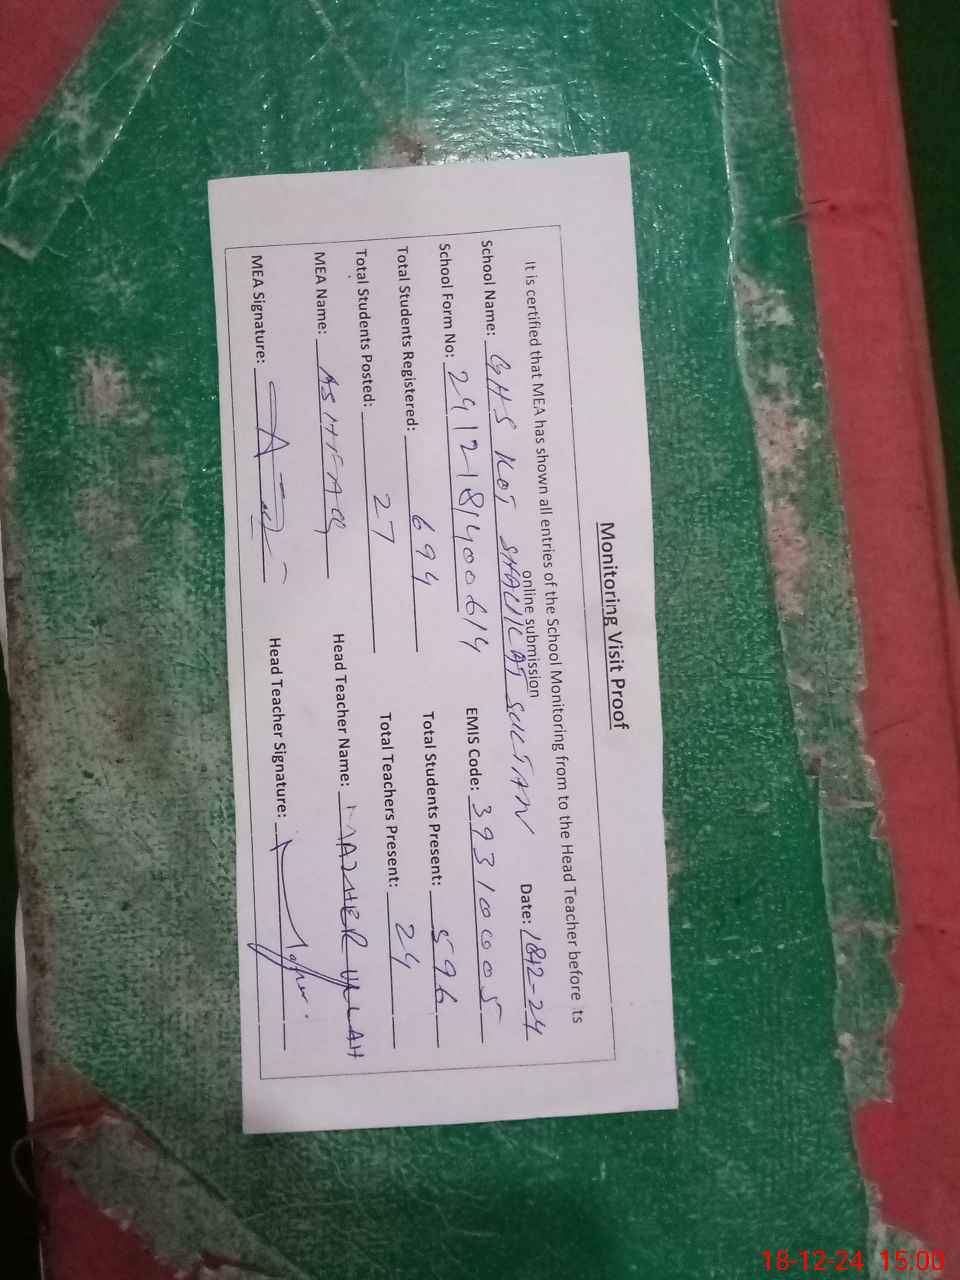 Monitoring Visit Proof
It is certified that MEA has shown all entries of the School Monitoring from to the Head Teacher before its
online submission
School Name: GHS KOT SHAUKAT SULTAN Date: 18-12-24
School Form No: 2412181400614 EMIS Code: 39310005
Total Students Registered: 694 Total Students Present: 596
Total Students Posted: 27 Total Teachers Present: 24
MEA Name: ASHFAQ Head Teacher Name: MAZHER ULLAH
MEA Signature: Head Teacher Signature:
18-12-24 15:00